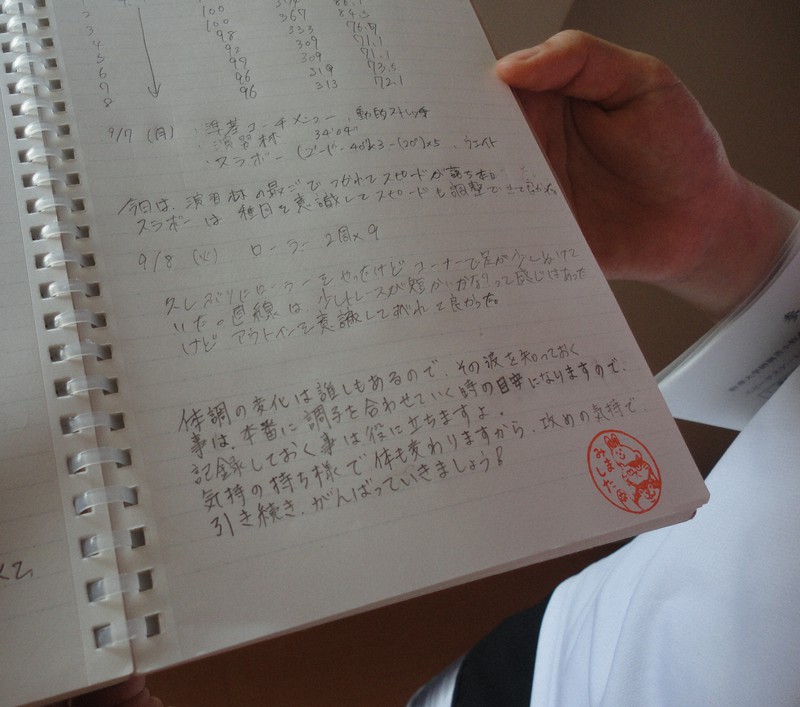 3 100 367 84.3
4 98 333 76.9
5 92 309 71.1
6 97 309 71.1
7 96 319 73.5
8 96 313 72.1
9/7 (月) ・準基コーチメニュー ・動的ストレッチ
・演習林 34'04"
・スラボー ・ウエイト
今日は、演習林の最ごでつかれてスピードが落ちた。
スラボーは種目を意識してスピードも調整できて良かった。
9/8 (火) ローラー 2周×9
久しぶりにローラーをやったけどコーナーで足が少しぬけて
いた。直線は少しトレースが短かいかな?って感じはあった
けどアウトインを意識して 良かった。
体調の変化は誰しもあるので、その波を知っておく
事は、本番に調子を合わせていく時の目安になりますので、
記録しておく事は役に立ちますよ。
気持の持ち様で体も変わりますから、攻めの気持で
引き続き、がんばっていきましょう!
みました